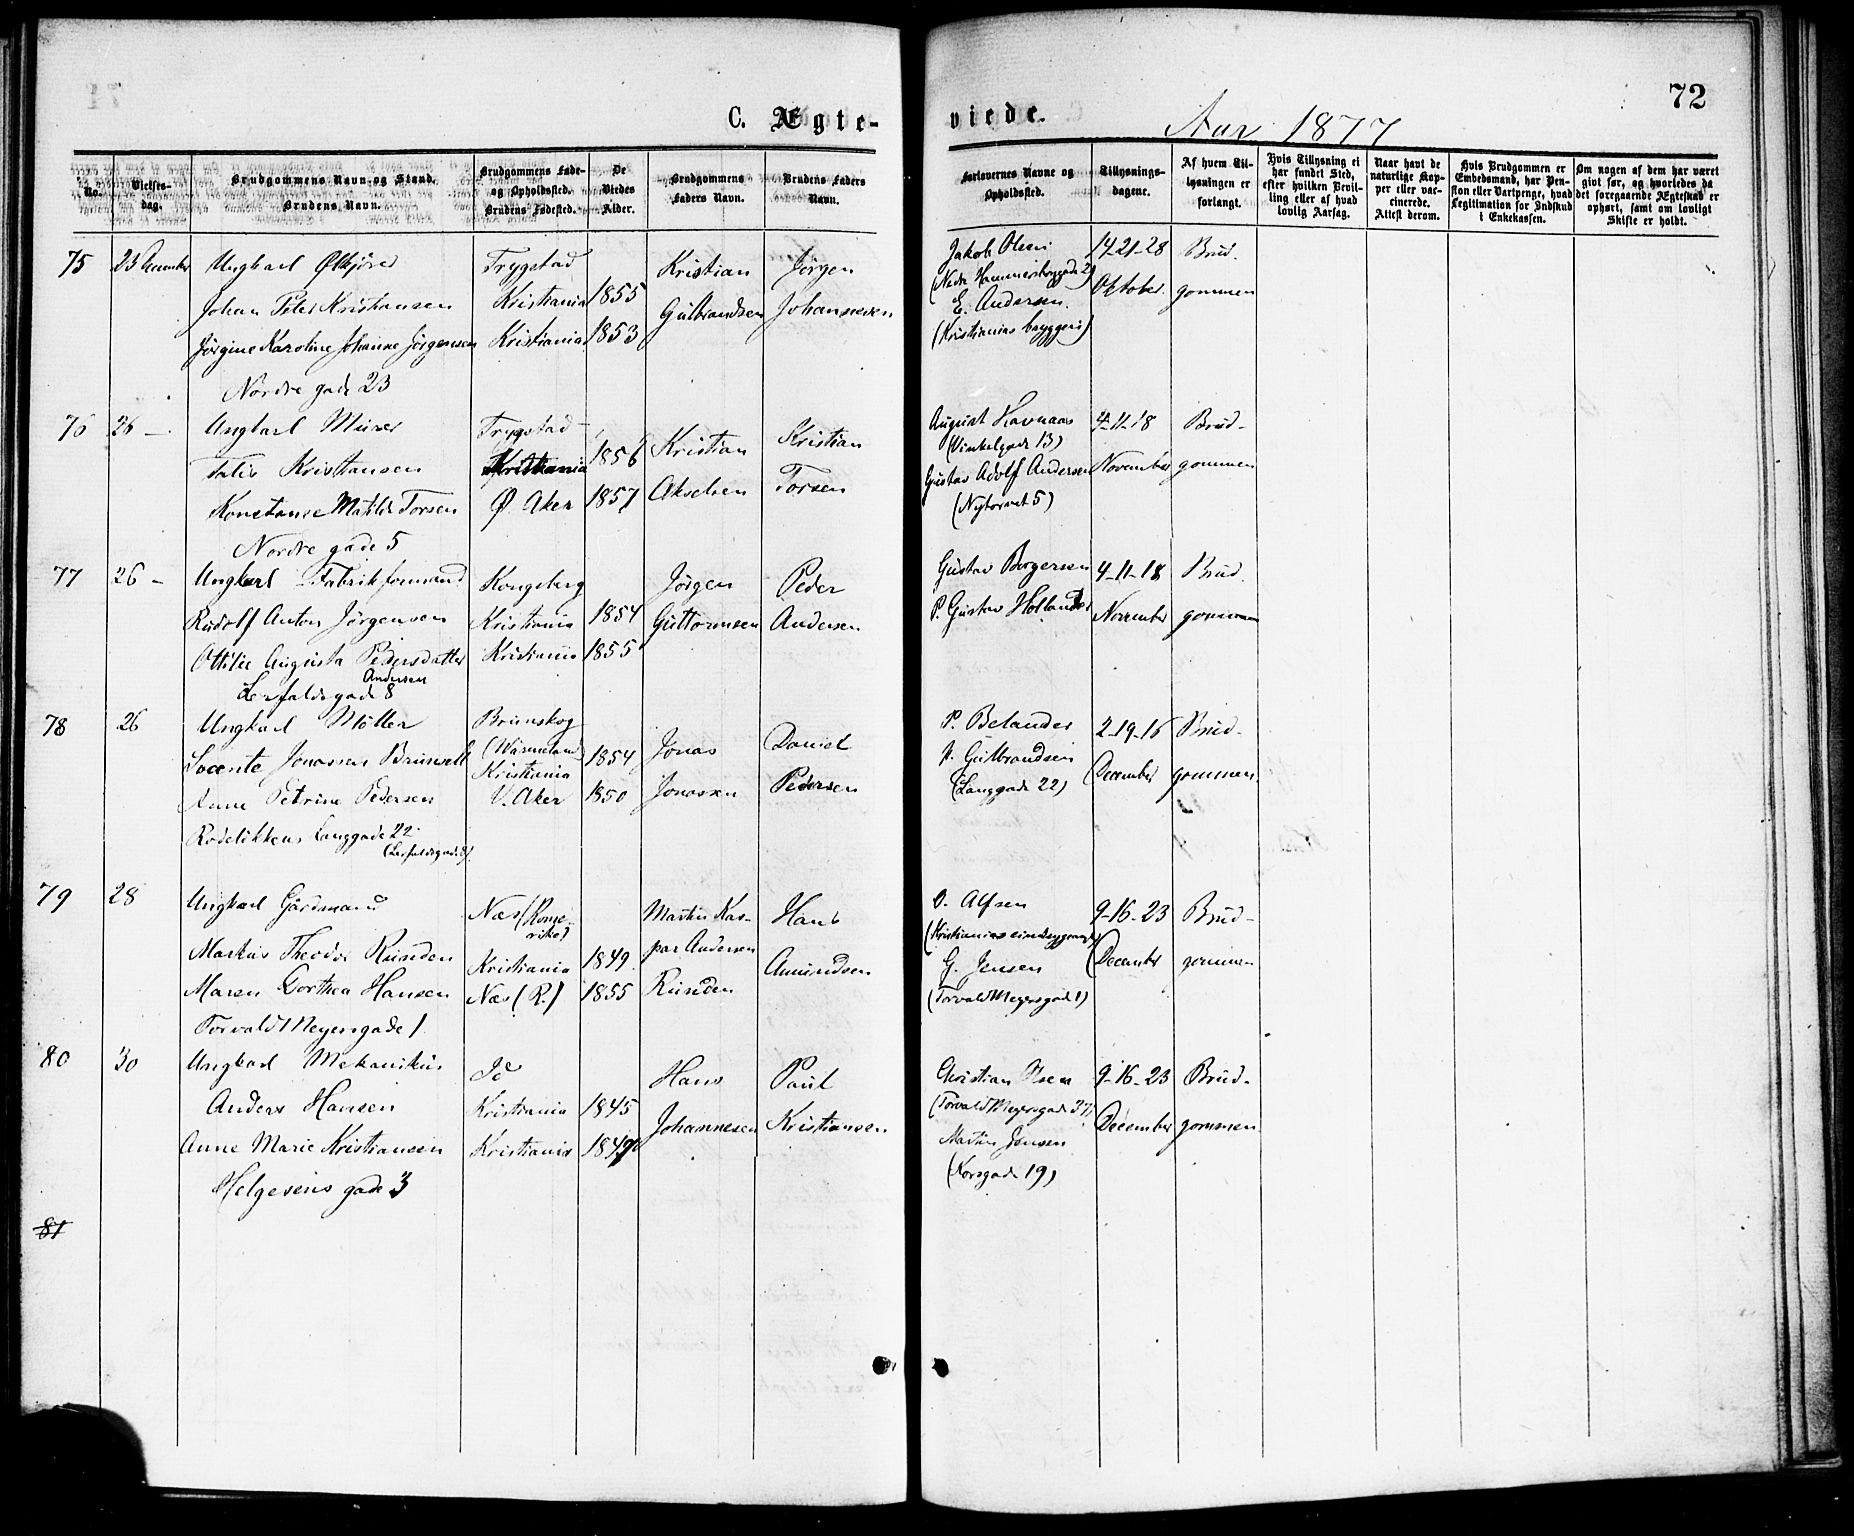 C. Ægte-
viede.
Aar 1877
72
No.
Vielses-
dag.
Brudgommens Navn og Stand.
Brudens Navn.
Brudgommens Føde-
og Opholdssted.
Brudens Fødested.
De
Viedes
Alder.
Brudgommens
Faders Navn.
Brudens Faders
Navn.
Forlovernes Navne og
Opholdssted.
Tillysnings-
dagene.
Af hvem Til-
lysningen er
forlangt.
Hvis Tillysning ei
har fundet Sted,
efter hvilken Bevil-
ling eller af hvad
lovlig Aarsag.
Naar havt de
naturlige Kop-
per eller vac-
cinerede.
Attest derom.
Hvis Brudgommen er
Embedsmand, har Pen-
sion eller Vartpenge, hvad
Legitimation for Indskud
i Enkekassen.
Om nogen af dem har været
gift før, og hvorledes da
det foregaaende Ægteskab er
ophørt, samt om lovligt
Skifte er holdt.
75
23 December
Ungkarl Ølkjører
Johan Peter Kristiansen
Jørgine Karoline Johanne Jørgensen
Nordre gade 23
Trygstad
Kristiania
Kristiania
1855
1853
Kristian
Gulbrandsen
Jørgen
Johannesen
Jakob Olsen
(Nedre Hammersborggade 2)
E. Andersen.
(Kristianias bryggeri)
14-21-28
Oktober.
Brud-
gommen
76
26 —
Ungkarl Murer
Kristiansen
Konstanse Matilde Torsen
Nordre gade 5
Trygstad
Kristiania
Ø. Aker
1856
1857
Kristian
Akselsen
Kristian
Torsen
August Havnaas
(Vinkelgade 13)
Gustav Adolf Andersen
(Nytorvet 5)
4-11-18
November
Brud-
gommen
77
26 —
Ungkarl Fabrikformand
Rudolf Anton Jørgensen
Ottilie Augusta Pedersdatter
Andersen
Lerfaldsgade 8
Kongsberg
Kristiania
Kristiania
1854
1855
Jørgen
Guttormsen
Peder
Andersen
Gustav Borgersen
P. Gustav Hollander
4-11-18
November
Brud-
gommen
78
26
Ungkarl Møller
Jonassen
Anne Petrine Pedersen
Langgade 22
(Lerfaldsgade 8)
Brunskog
(Wärmeland)
Kristiania
V. Aker
1854
1850
Jonas
Jonassen
Daniel
Pedersen
P. Belander
Gulbrandsen
(Langgade 22)
2-19-16
December
Brud-
gommen
79
28
Ungkarl Gårdmand
Markus Theodor Runden
Maren Dorthea Hansen
Torvald Meyersgade 1
Næs (Rome-
rike)
Kristiania
Næs (R.)
1849
1855
Martin Kas-
par Andersen
Runden
Hans
Amundsen
O. Alfsen
G. Jensen
(Torvald Meyersgade 1)
9-16-23
December
Brud-
gommen
80
30
Ungkarl Mekanikus
Anders Hansen
Anne Marie Kristiansen
Helgesens gade 3
Id
Kristiania
Kristiania
1845
1849
Hans
Johannesen
Paul
Kristiansen
Christian Olsen
(Torvald Meyersgade 37)
Martin Jensen
(Korsgade 19)
9-16-23
December
Brud-
gommen
81